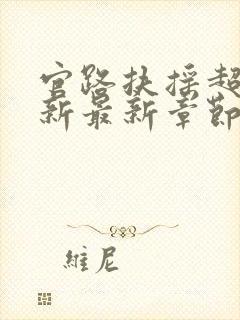 官路扶摇超
新最新章節
維尼